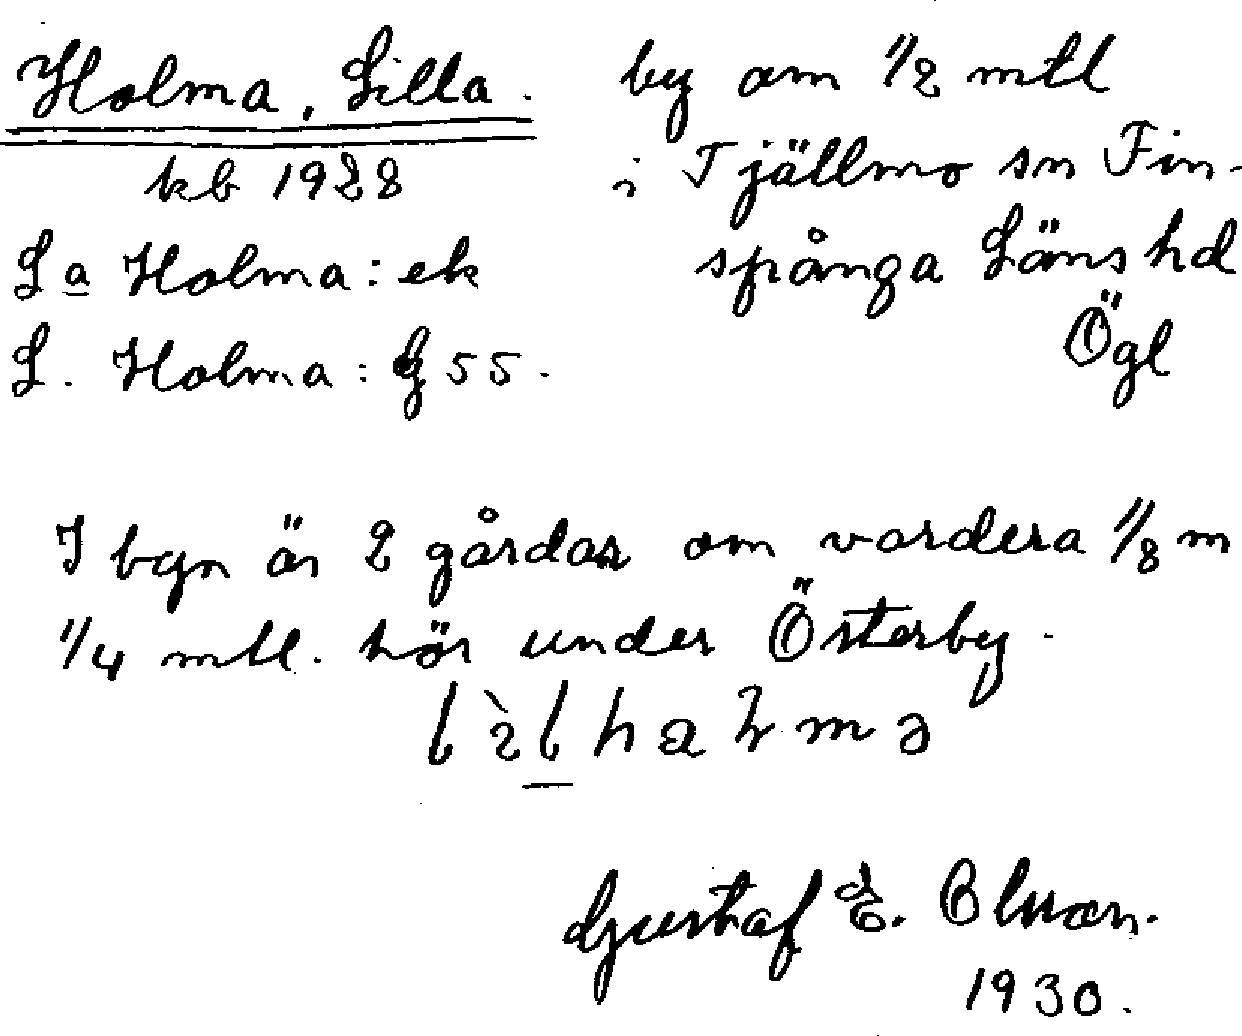 Holma, Lilla.
kb 1928
La Holma: ek
L. Holma: G 55.
by om 1/2 mtl
i Tjällmo sn Fin-
spånga Läns hd
Ögl
I byn är 2 gårdar om vardera 1/8 m
1/4 mtl. hör under Österby.
Gustaf E.
1930.